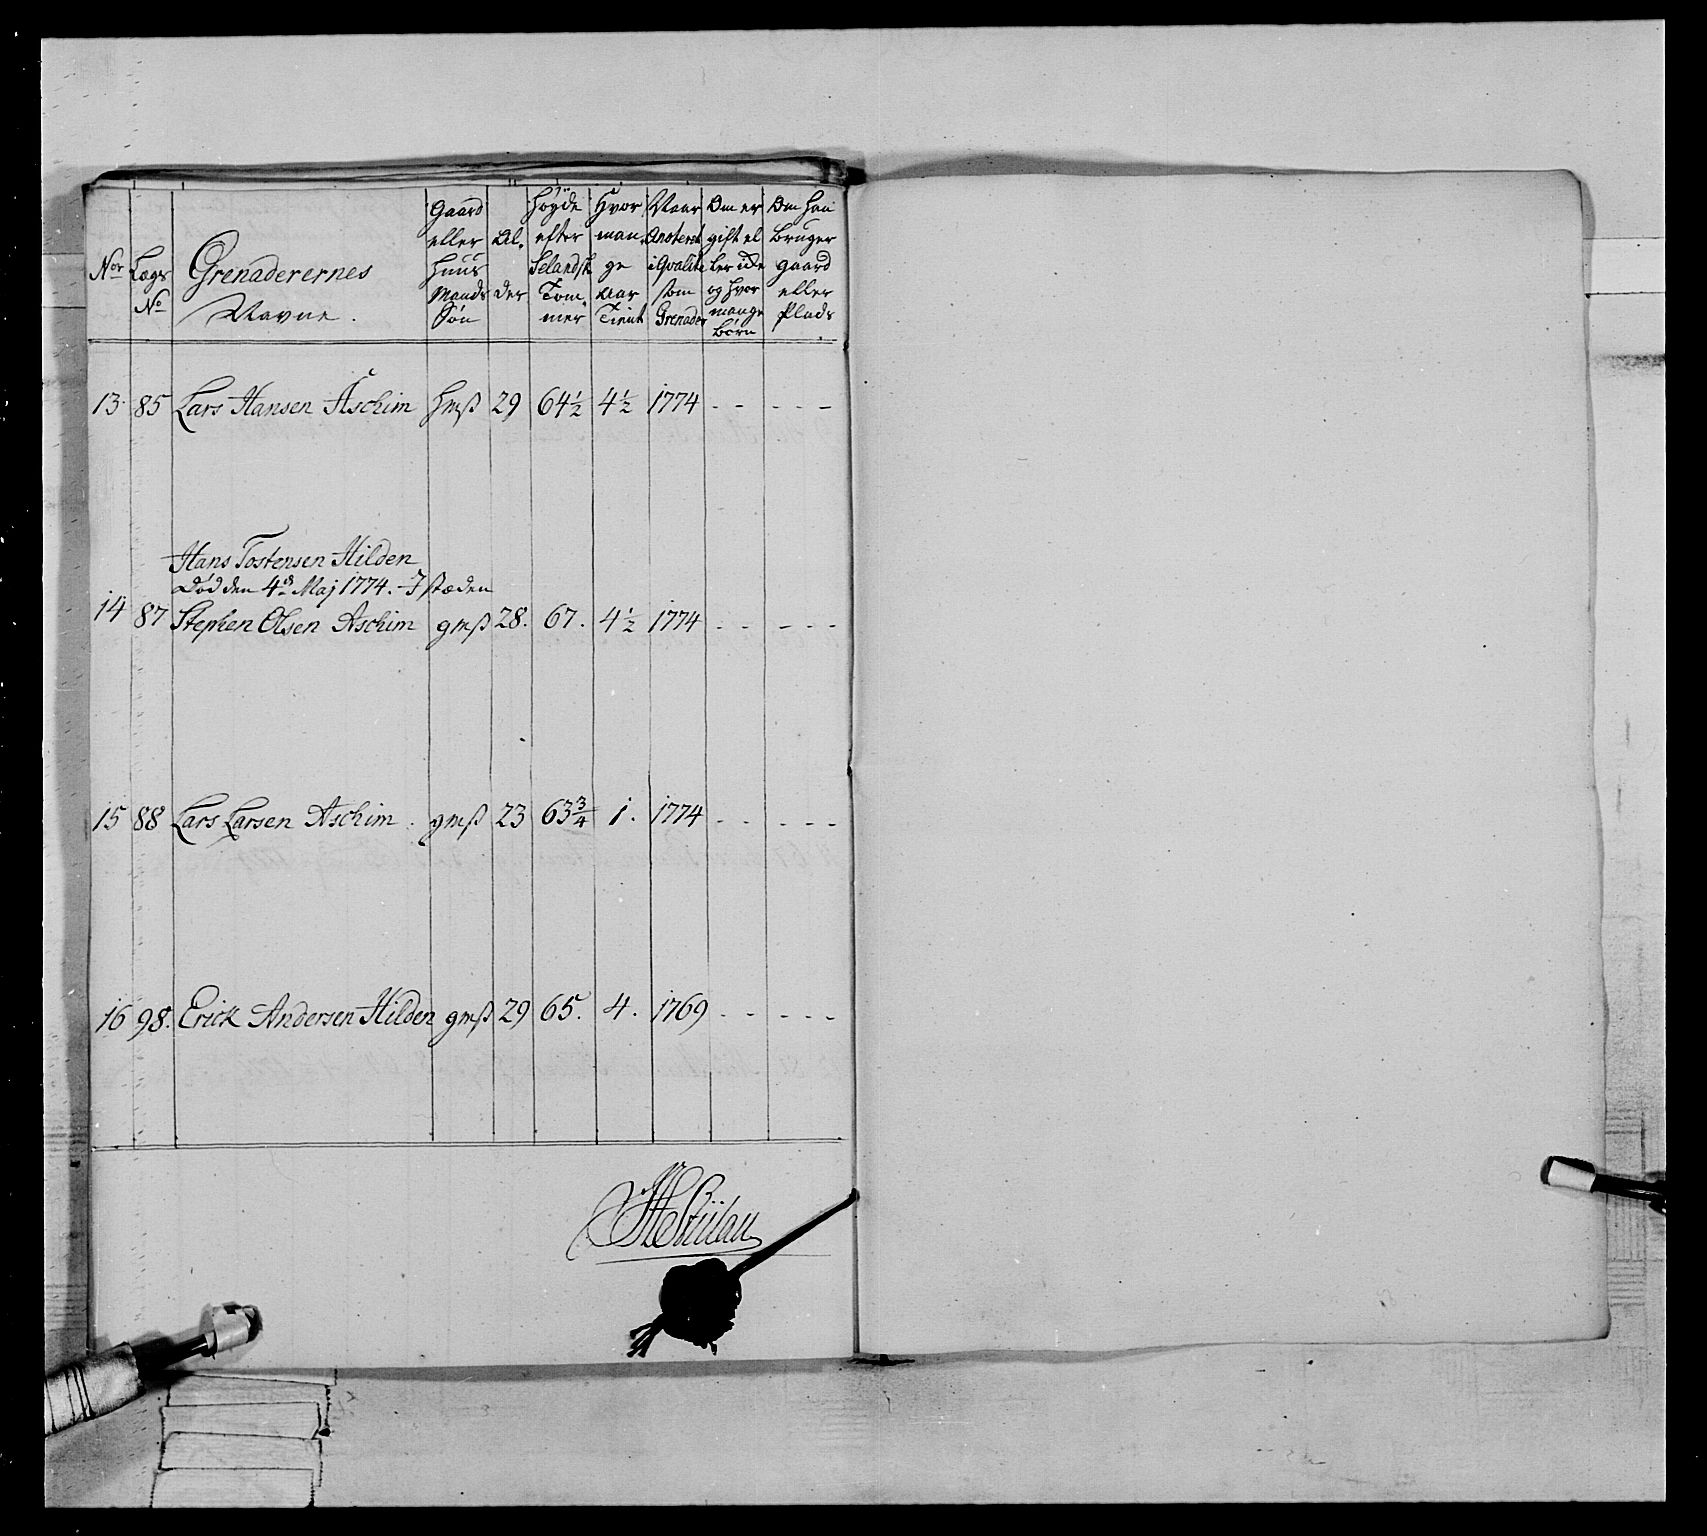 Nor | Lægs No | Grenaderernes Navne. | Gaard eller Huus Mands Søn | Al, der | Høÿde efter Selandsk Tom, mer | Hvor man, ge Aar Tient | Naar Anoteret i Qvalite som Grenader | Om er gift el ler icke og hvor mange børn | Om han bruger gaard eller Plads
13. | 85 | Lars Hansen Aschim | Hmß | 29 | 64½ | 4½ | 1774 | - - | - - -
Hans Tostensen Hilden
Død den 4de Maj 1774. - I stæden
14 | 87 | Stephen Olsen Aschim | gmß | 28. | 67. | 4½ | 1774 | - - | - - -
15 | 88 | Lars Larsen Aschim. | gmß | 23 | 63¾ | 1. | 1774 | - - | - - -
16 | 98. | Erick Andersen Hilden | gmß | 29 | 65. | 4. | 1769 | - - | - - -